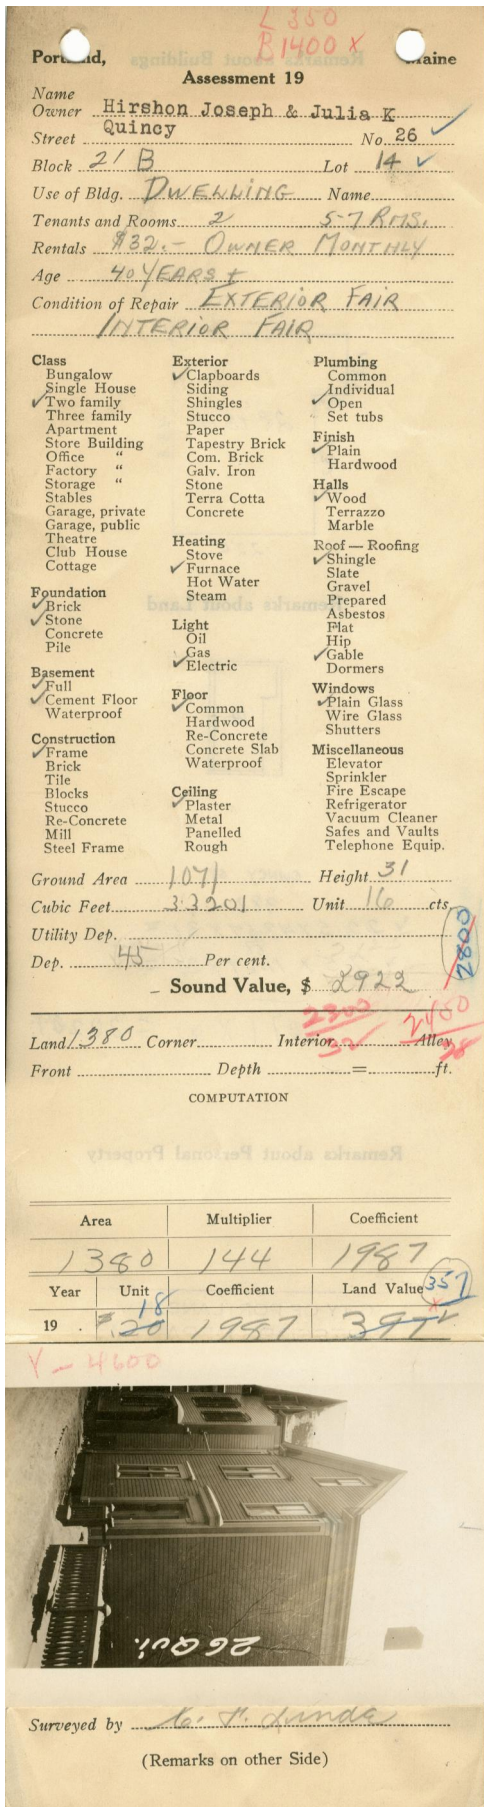 L 350
B 1400 x
Portland, Maine
Assessment 19
Name
Owner Hirshon Joseph & Julia K
Street Quincy No. 26 ✓
Block 21 B Lot 14 ✓
Use of Bldg. DWELLING Name
Tenants and Rooms 2 5-7 RMS.
Rentals $32.- OWNER MONTHLY
Age 40 YEARS ±
Condition of Repair EXTERIOR FAIR
INTERIOR FAIR
Class
Bungalow
Single House
✓Two family
Three family
Apartment
Store Building
Office "
Factory "
Storage "
Stables
Garage, private
Garage, public
Theatre
Club House
Cottage
Foundation
✓Brick
✓Stone
Concrete
Pile
Basement
✓Full
✓Cement Floor
Waterproof
Construction
✓Frame
Brick
Tile
Blocks
Stucco
Re-Concrete
Mill
Steel Frame
Exterior
✓Clapboards
Siding
Shingles
Stucco
Paper
Tapestry Brick
Com. Brick
Galv. Iron
Stone
Terra Cotta
Concrete
Heating
Stove
✓Furnace
Hot Water
Steam
Light
Oil
✓Gas
✓Electric
Floor
✓Common
Hardwood
Re-Concrete
Concrete Slab
Waterproof
Ceiling
✓Plaster
Metal
Panelled
Rough
Plumbing
Common
✓Individual
✓Open
Set tubs
Finish
✓Plain
Hardwood
Halls
✓Wood
Terrazzo
Marble
Roof — Roofing
✓Shingle
Slate
Gravel
Prepared
Asbestos
Flat
Hip
✓Gable
Dormers
Windows
✓Plain Glass
Wire Glass
Shutters
Miscellaneous
Elevator
Sprinkler
Fire Escape
Refrigerator
Vacuum Cleaner
Safes and Vaults
Telephone Equip.
Ground Area 1071 Height 31
Cubic Feet 33201 Unit 16 cts.
Utility Dep.
2800
Dep. 45 Per cent.
Sound Value, $ 2922
2400
Land 1380 Corner Interior Alley
Front Depth = ft.
COMPUTATION
Area Multiplier Coefficient
1380 144 1987
Year Unit Coefficient Land Value 357
18
19 . $.20 1987 397
Y - 4600
26 Qui.
Surveyed by
(Remarks on other Side)